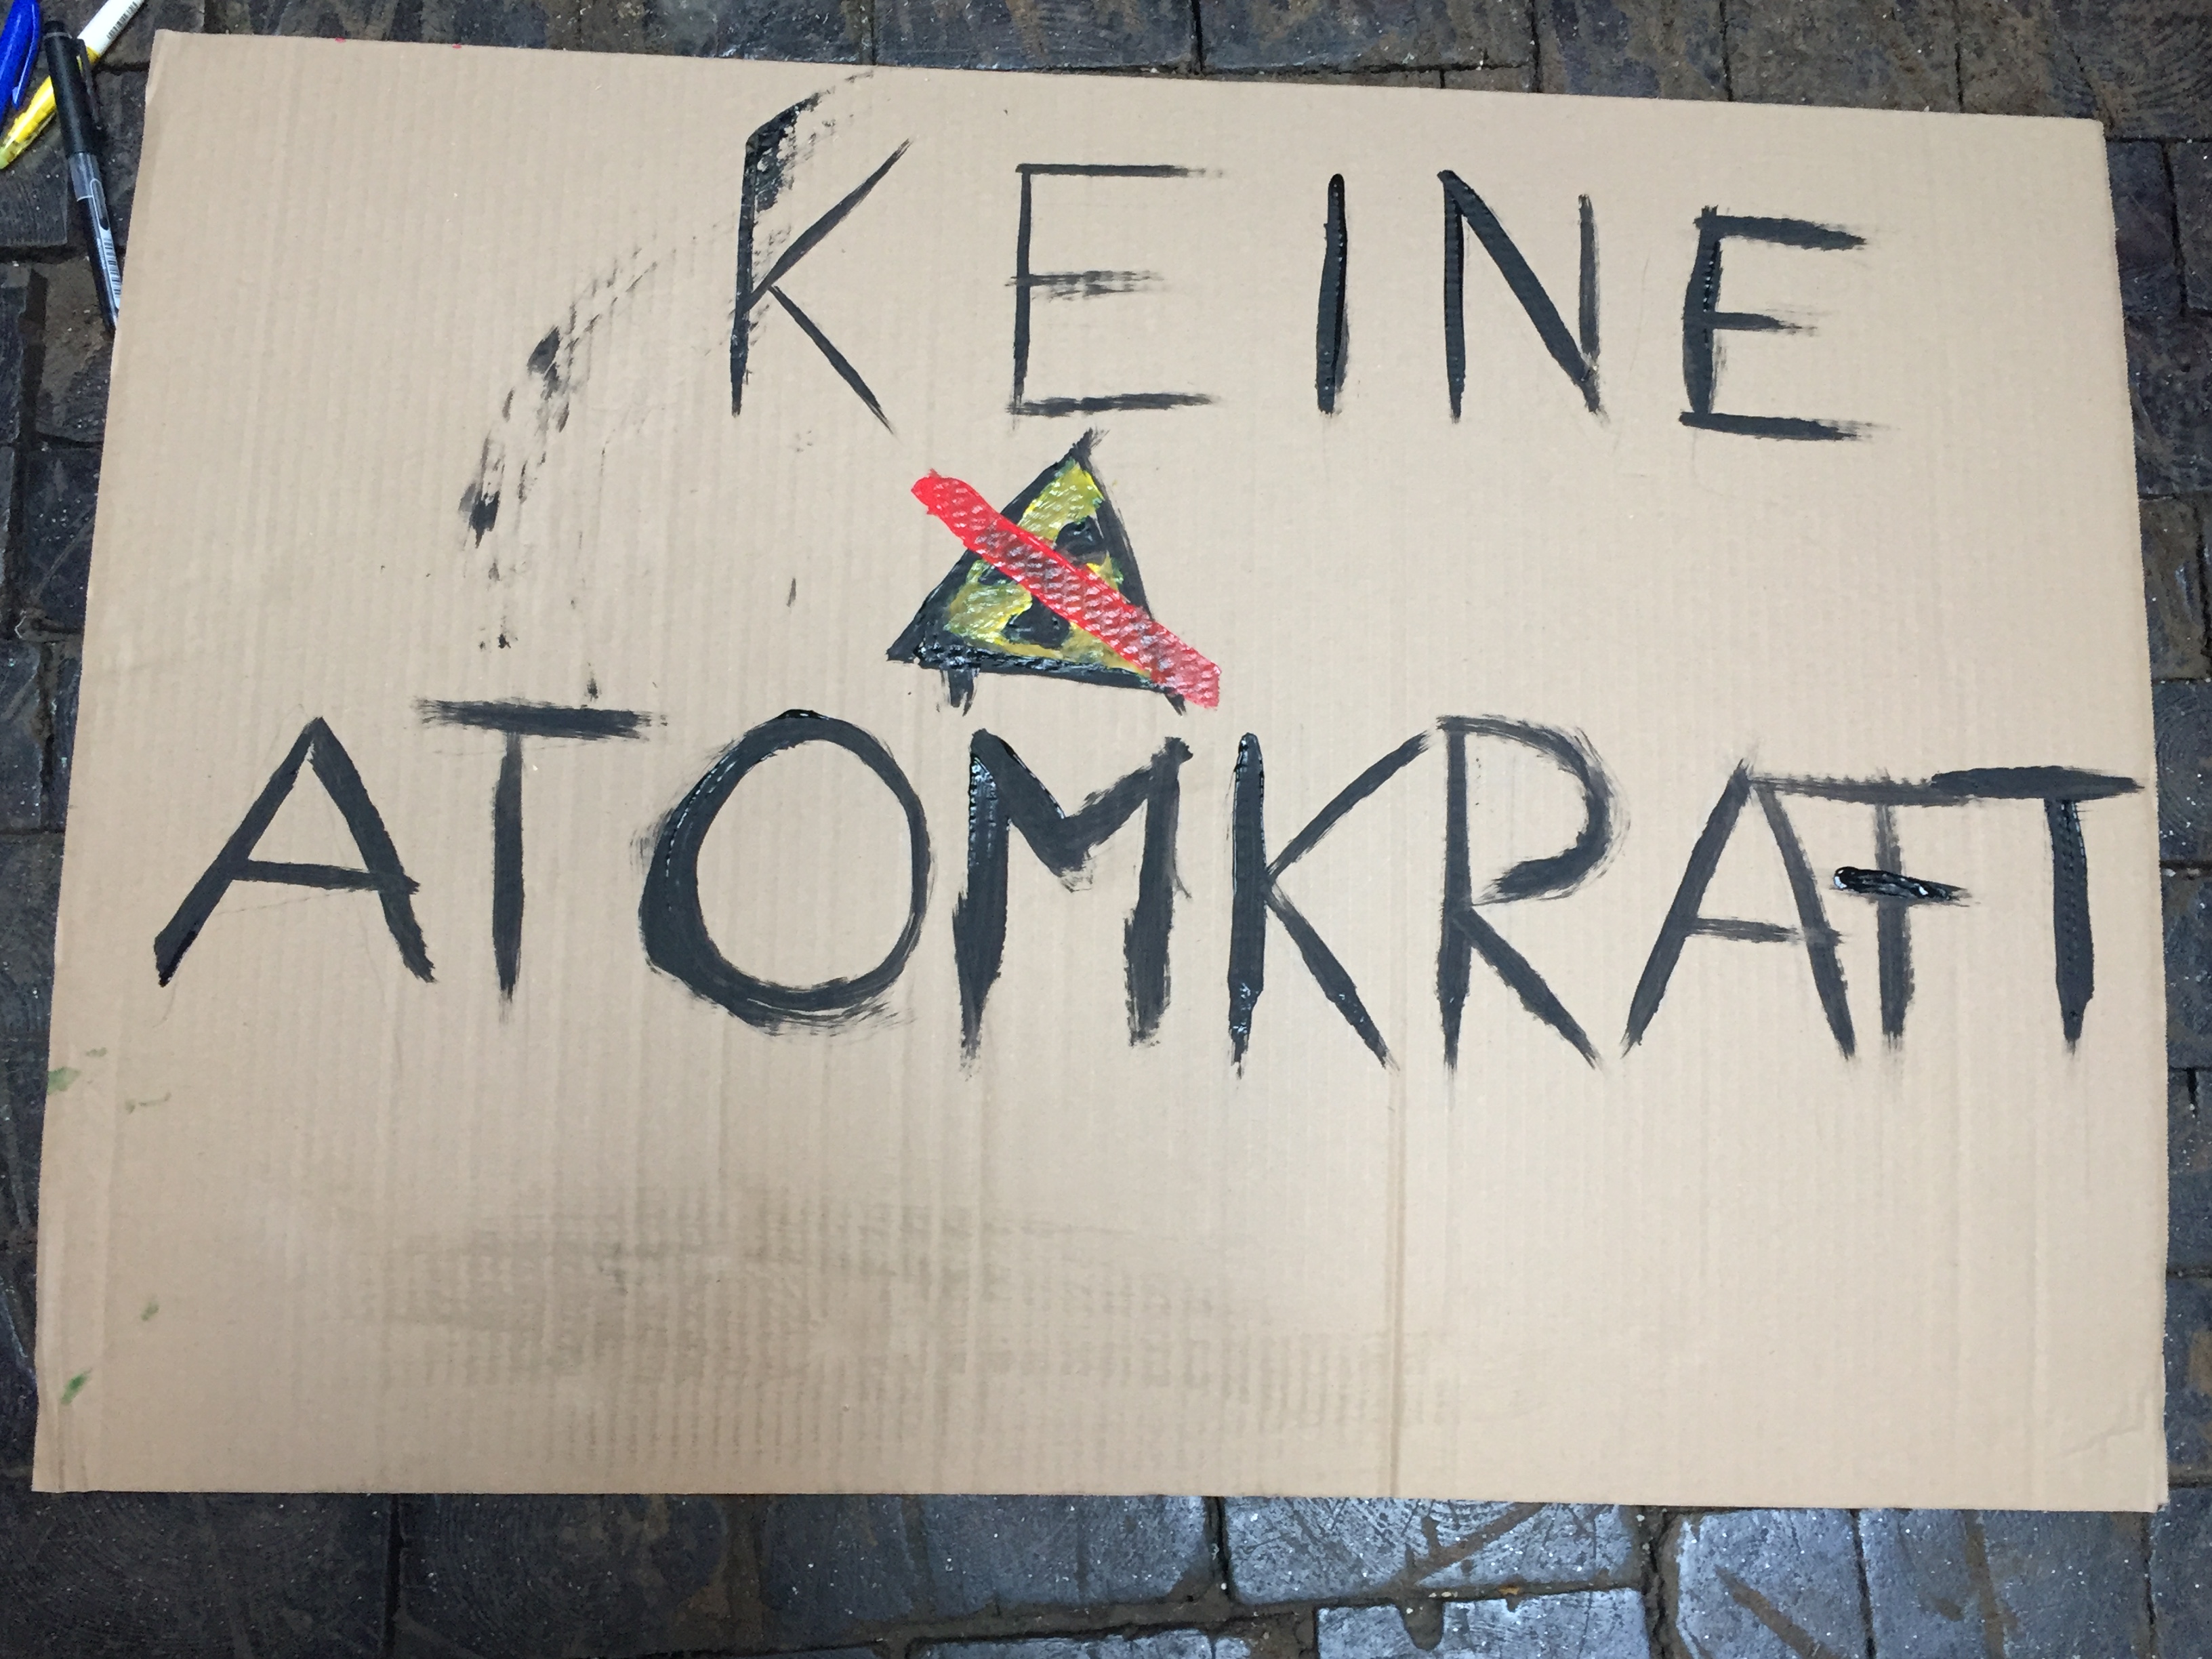 KEINE
ATOMKRAFT